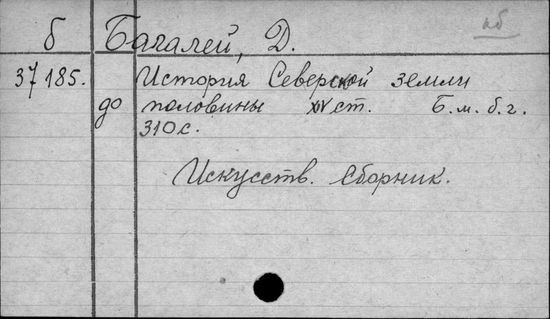 б Багалей, Д.
37185. История Северской земли
до половины XIV ст. Б.м.б.г.
310 с.
Искусств. Сборник.